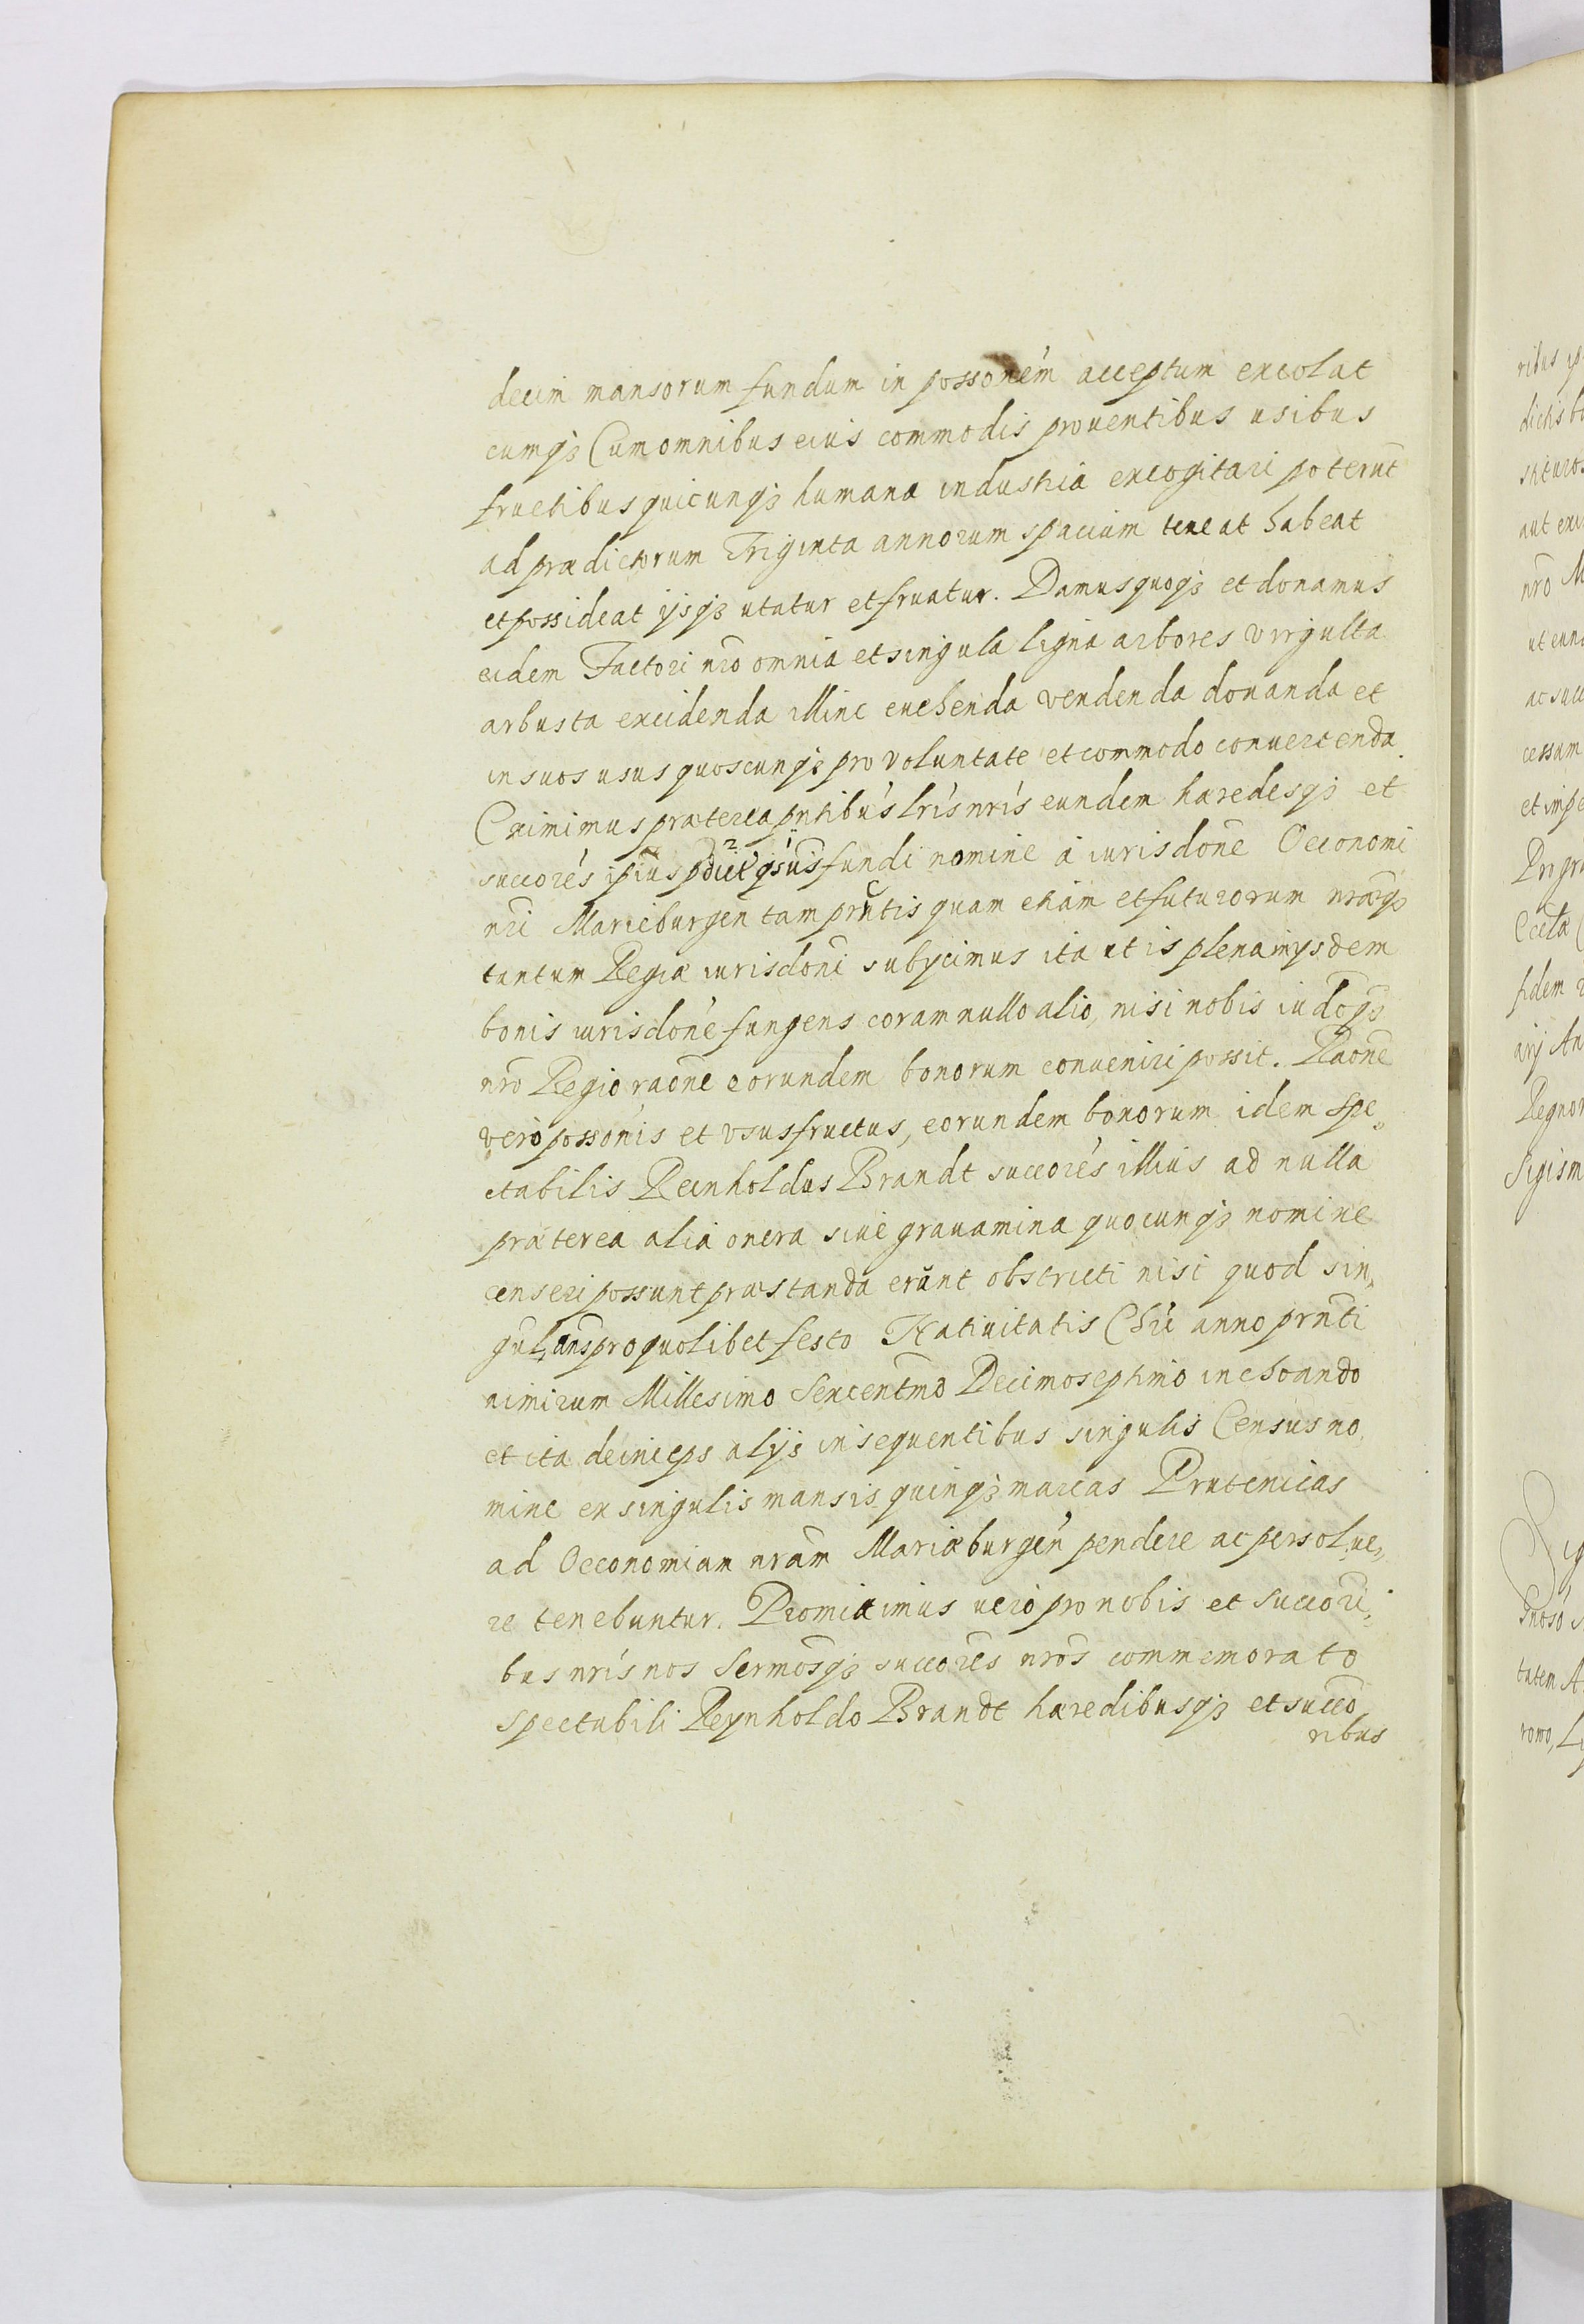 decim mansorum fundum in possonem acceptum excolat
eumq3 Cum omnibus eius commodis prouentibus usibus
fructibus quicunq3 humana industria excogitari poterunt
ad prædictorum Triginta annorum spacium teneat habeat
et possideat ijsq3 utatur et fruatur. Damus quoq3 et donamus
eidem Factori nro omnia et singula ligna arbores virgulta
arbusta excidenda illinc euehenda vendenda donanda et
in suos usus quoscunq3 pro voluntate et commodo conuertenda.
Eximimus præterea pntibus lris nris eundem hæredesq3 et
succores ipius fundi nomine à iurisdone Oeconomi
nri Marieburgen tam prntis quam etiam et futurorum nræq3
tantum Regiæ iurisdoni subycimus ita ut is plena in ysdem
bonis iurisdone fungens coram nullo alio, nisi nobis iudoq3
nro Regio raone eorundem bonorum conueniri possit. Raone
vero possonis et vsusfructus, eorundem bonorum idem Spe„
ctabilis Reinholdus Brandt succores illius ad nulla
præterea alia onera siue grauamina quocunq3 nomine
censeri possunt præstanda erunt obstricti nisi quod sin„
gul anspro quolibet festo Natiuitatis Chri anno prnti
nimirum Millesimo Sexcentmo Decimoseptimo inchoando
et ita deinceps alijs insequentibus singulis Census no„
mine ex singulis mansis quinq3 marcas Prutenicas
ad Oeconomiam nram Mariæburgen pendere ac persolue„
re tenebuntur. Promittimus uero pro nobis et succori„
bus nris nos Sermosq3 succores nros commemorato
spectabili Reynholdo Brandt hæredibusq3 et succo
ribus